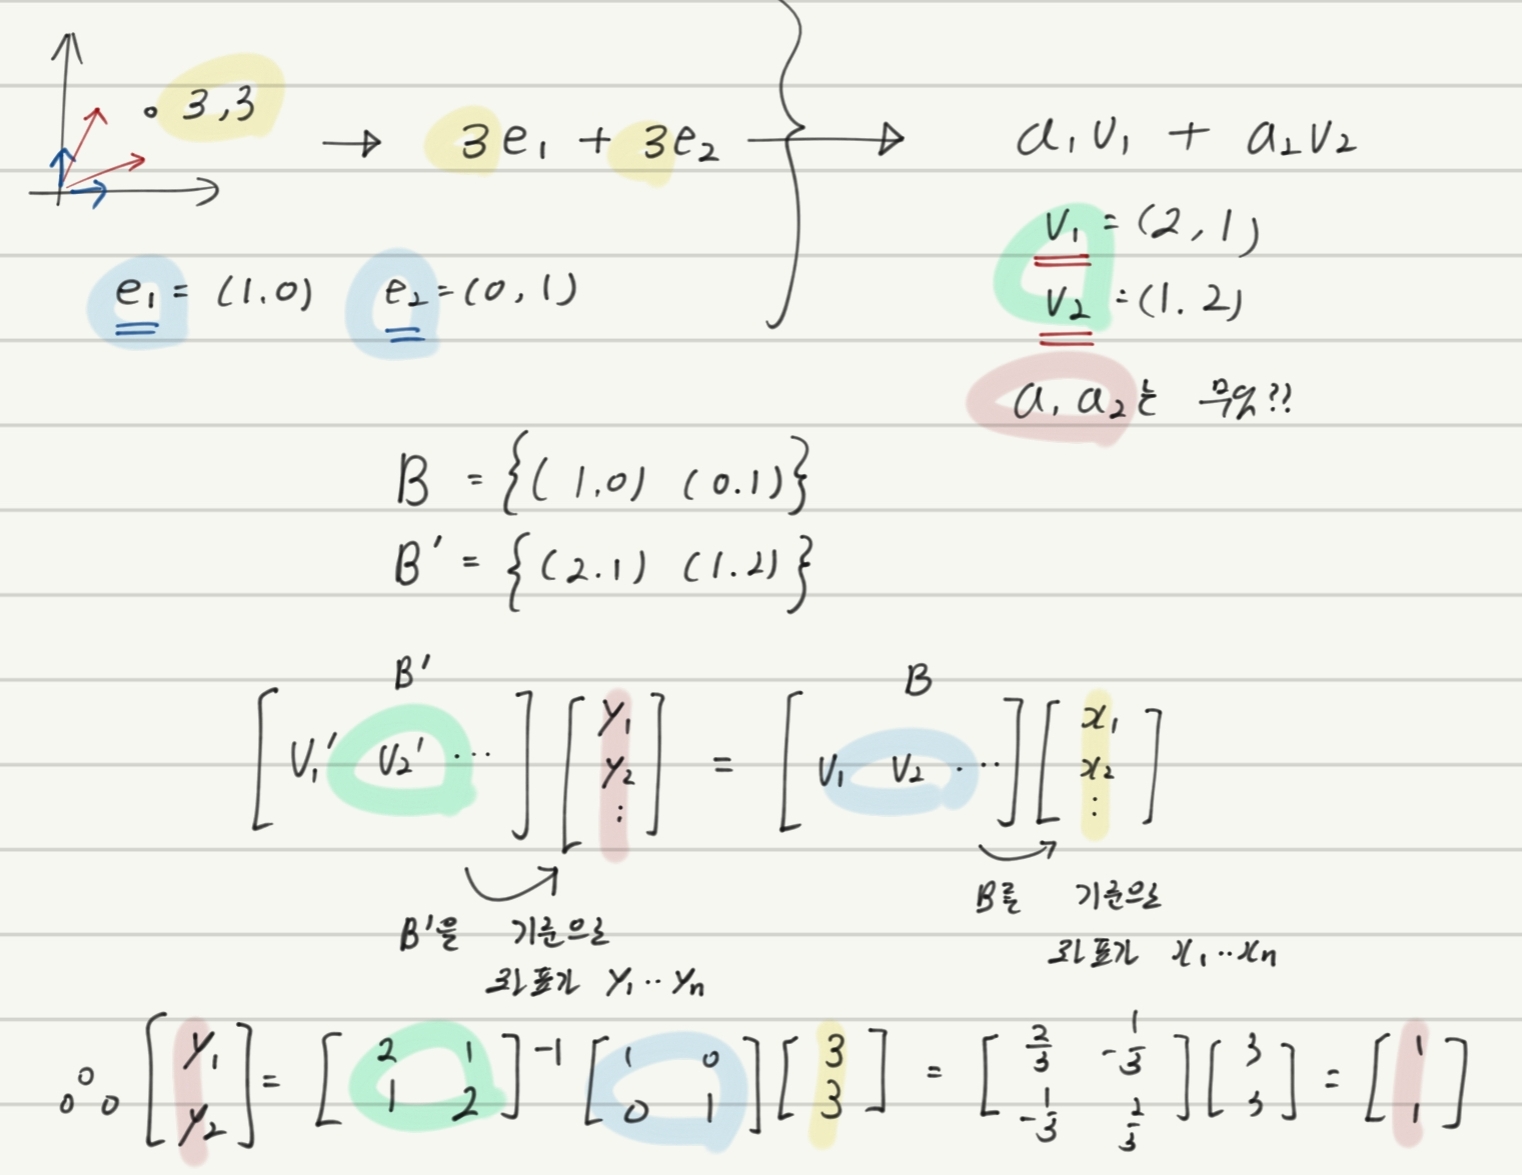 3,3 → 3e₁ + 3e₂ → a₁v₁ + a₂v₂
e₁ = (1.0) e₂=(0,1)
v₁ = (2,1)
v₂ =(1.2)
a₁ a₂는 무엇??
B = {(1.0) (0.1)}
B' = {(2.1) (1.2)}
B' B
[v₁' v₂' ⋯] [y₁ y₂ ⋮] = [v₁ v₂ ⋯] [x₁ x₂ ⋮]
B'을 기준으로
좌표가 y₁‥yₙ
B를 기준으로
좌표가 x₁‥xₙ
∴ [y₁ y₂] = [2 1 1 2]⁻¹ [1 0 0 1] [3 3] = [2/3 -1/3 -1/3 2/3] [3 3] = [1 1]